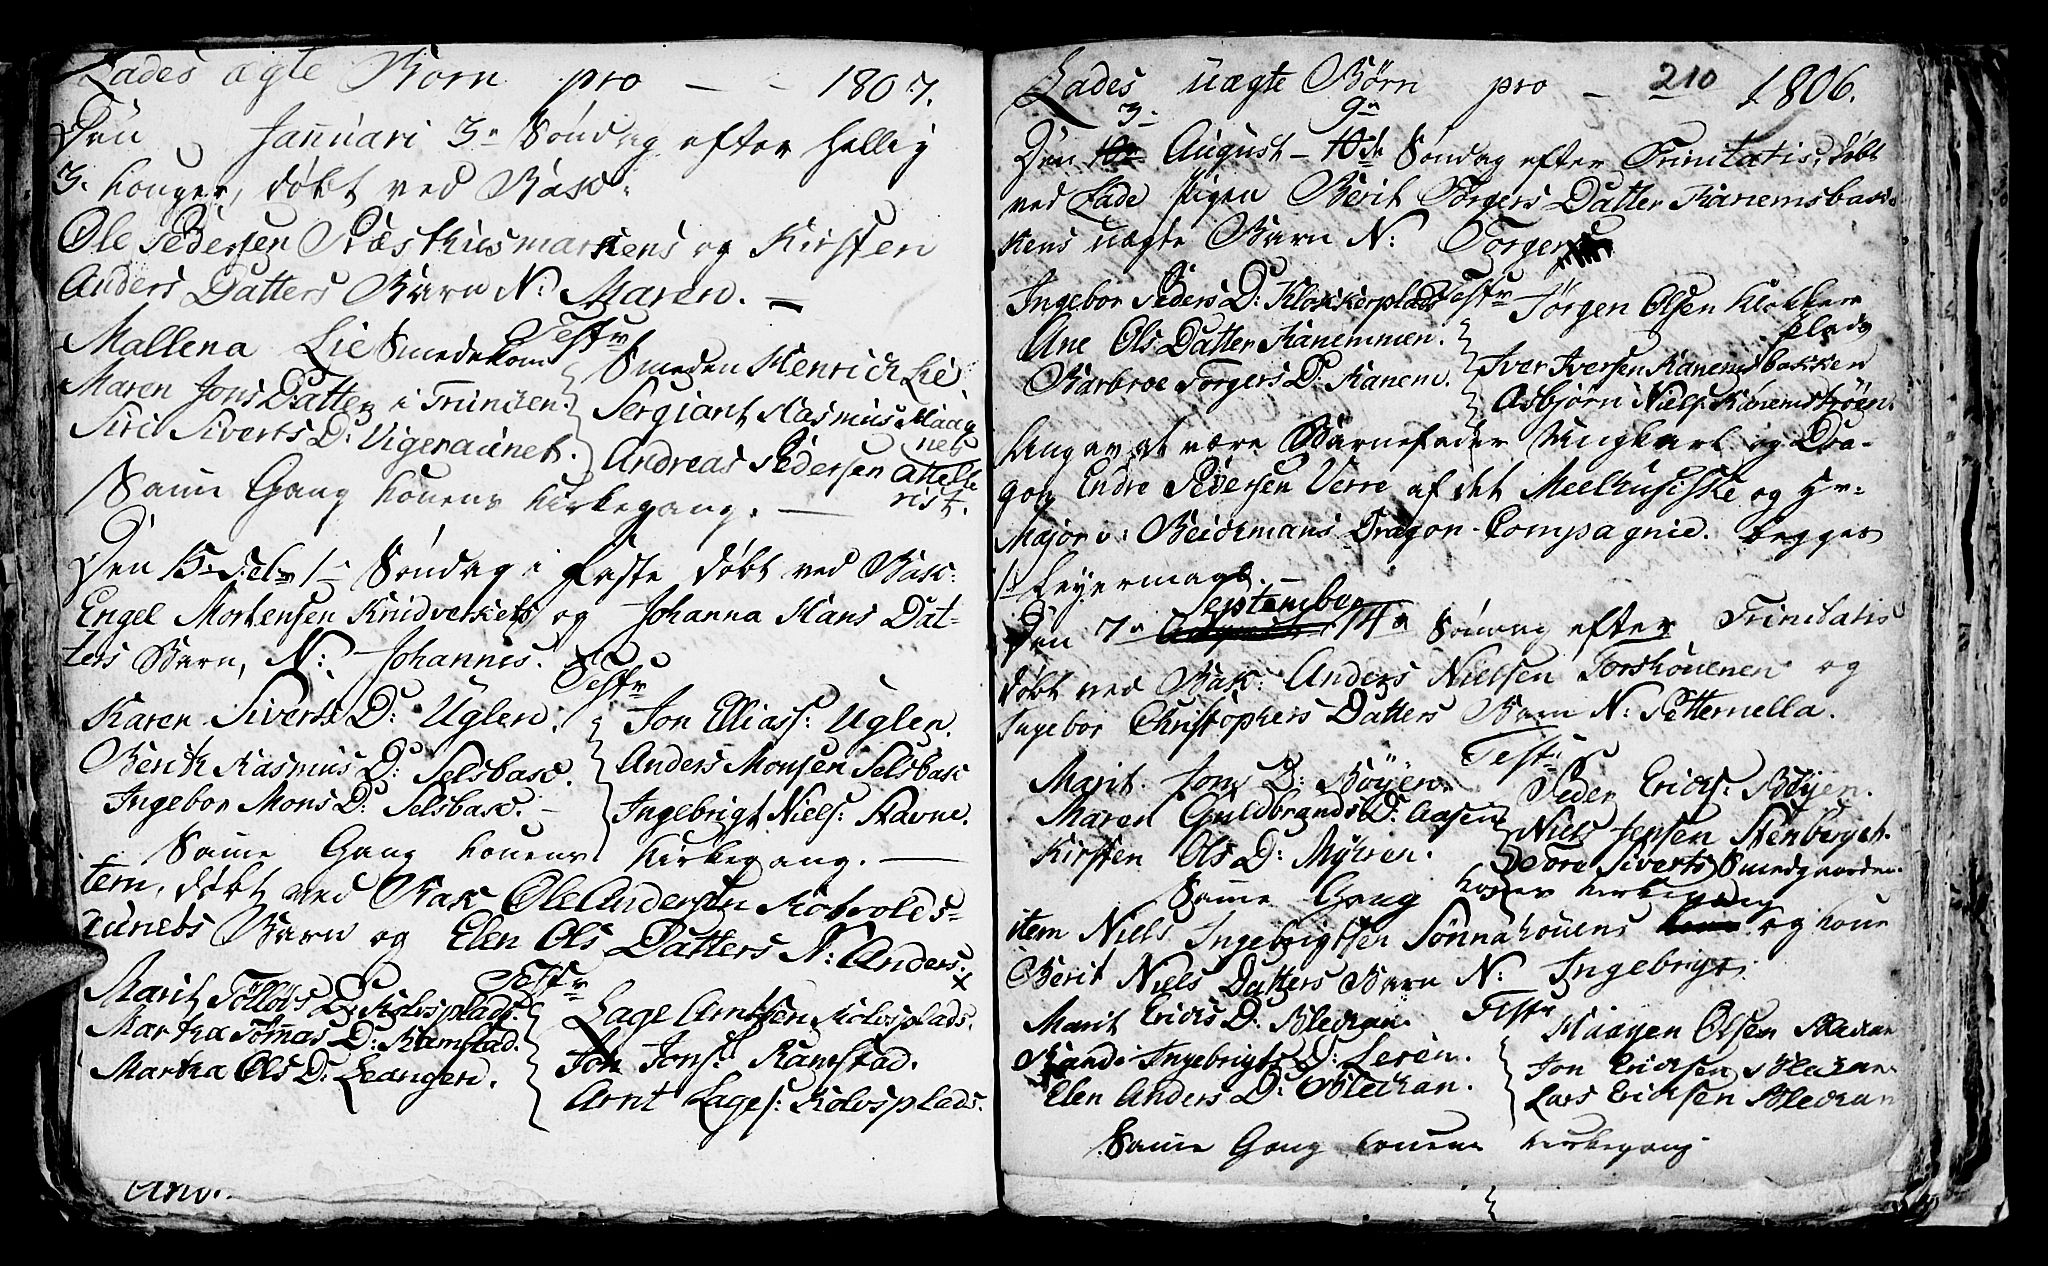 Lades ægte Børn pro - - 1807.
Den Januari 3e Søndag efter Hellig
3. Konger, døbt ved Bak:
Ole Pedersen Præsthusmarkens og Kirsten
Anders Datters Barn N: Maren. -
Testes
Mallena Lie Smedekone
Maren Jons Datter i Trunden.
Siri Siverts D: Vigeraunet.
Smeden Henrich Lie
Sergiant Rasmus Maag
nes
Andreas Pedersen Atelle
rist.
Samme Gang Konens Kirkegang. -
Den 15e 1e Søndag i Faste døbt ved Bak:
Engel Mortensen Knudverkets og Johanna Hans Dat-
ters Barn, N: Johannes.
Test
Karen Siverts D: Uglen.
Berith Rasmus D: Selsbak.
Ingebor Mons D: Selsbak. -
Jon Elliass: Uglen.
Anders Monsen Selsbak
Ingebrigt Niels: Stavne.
Samme Gang Konens Kirkegang. -
item, døbt ved Bak Ole Andersen Robvolds-
aunets Barn og Elen Ols Datters N: Anders.
Test
Marit Tolløvs D: Kolvsplads.
Martha Tomas D: Ramstad.
Martha Ols D: Leangen.
Lage Arntsen Kolvsplads.
Jon Jons: Ramstad.
Arnt Lages: Kolvsplads.
Anv.
Lades uægte Børn pro - 210 1806.
3- 9n
Den August - 10de Søndag efter Trinitatis, døbt
ved Lade Pigen Berit Torgers Datter Kanemsbak-
kens uægte Barn N: Torger
Test
Ingebor Peders D: Klokkerplads
Ane Ols Datter Kanemmen.
Barbroe Torgers D: Kanem.
Jørgen Olsen Klokker
plads
Iver Iversen Kanemsbakken
Asbjørn Niels: Kanemstrøen.
Angav at være Barnefader Ungkarl og Dra-
gon Endre Pedersen Verre af det Meelhusiske og Hr.
Major v: Beichmans Dragon-Compagnie. begges
1te Leyermaal. -
September
Den 7e 14e Søndag efter Trinitatis
døbt ved Bak: Anders Nielsen Forskouenen og
Ingebor Christophers Datters Barn N: Petternella.
Test:
Marit Jons D: Bøyen
Maren Guldbrands D: Aasen
Kirsten Ols D: Myhren.
Peder Erichs: Bøyen.
Niels Jensen Stenberget.
Tore Siverts: Smedgaarden.
Samme Gang Konens Kirkegang
item Niels Ingebrigtsen Sønnahouens og Kone
Berit Niels Datters Barn N: Ingebrigt.
Test
Marit Erichs D: Bleckan.
Randi Ingebrigts D: Leren.
Elen Anders D: Bleckan.
Haagen Olsen Bleckan
Jon Ericksen Bleckan
Lars Ericksen Bleckan
Samme Gang Konens Kirkegang